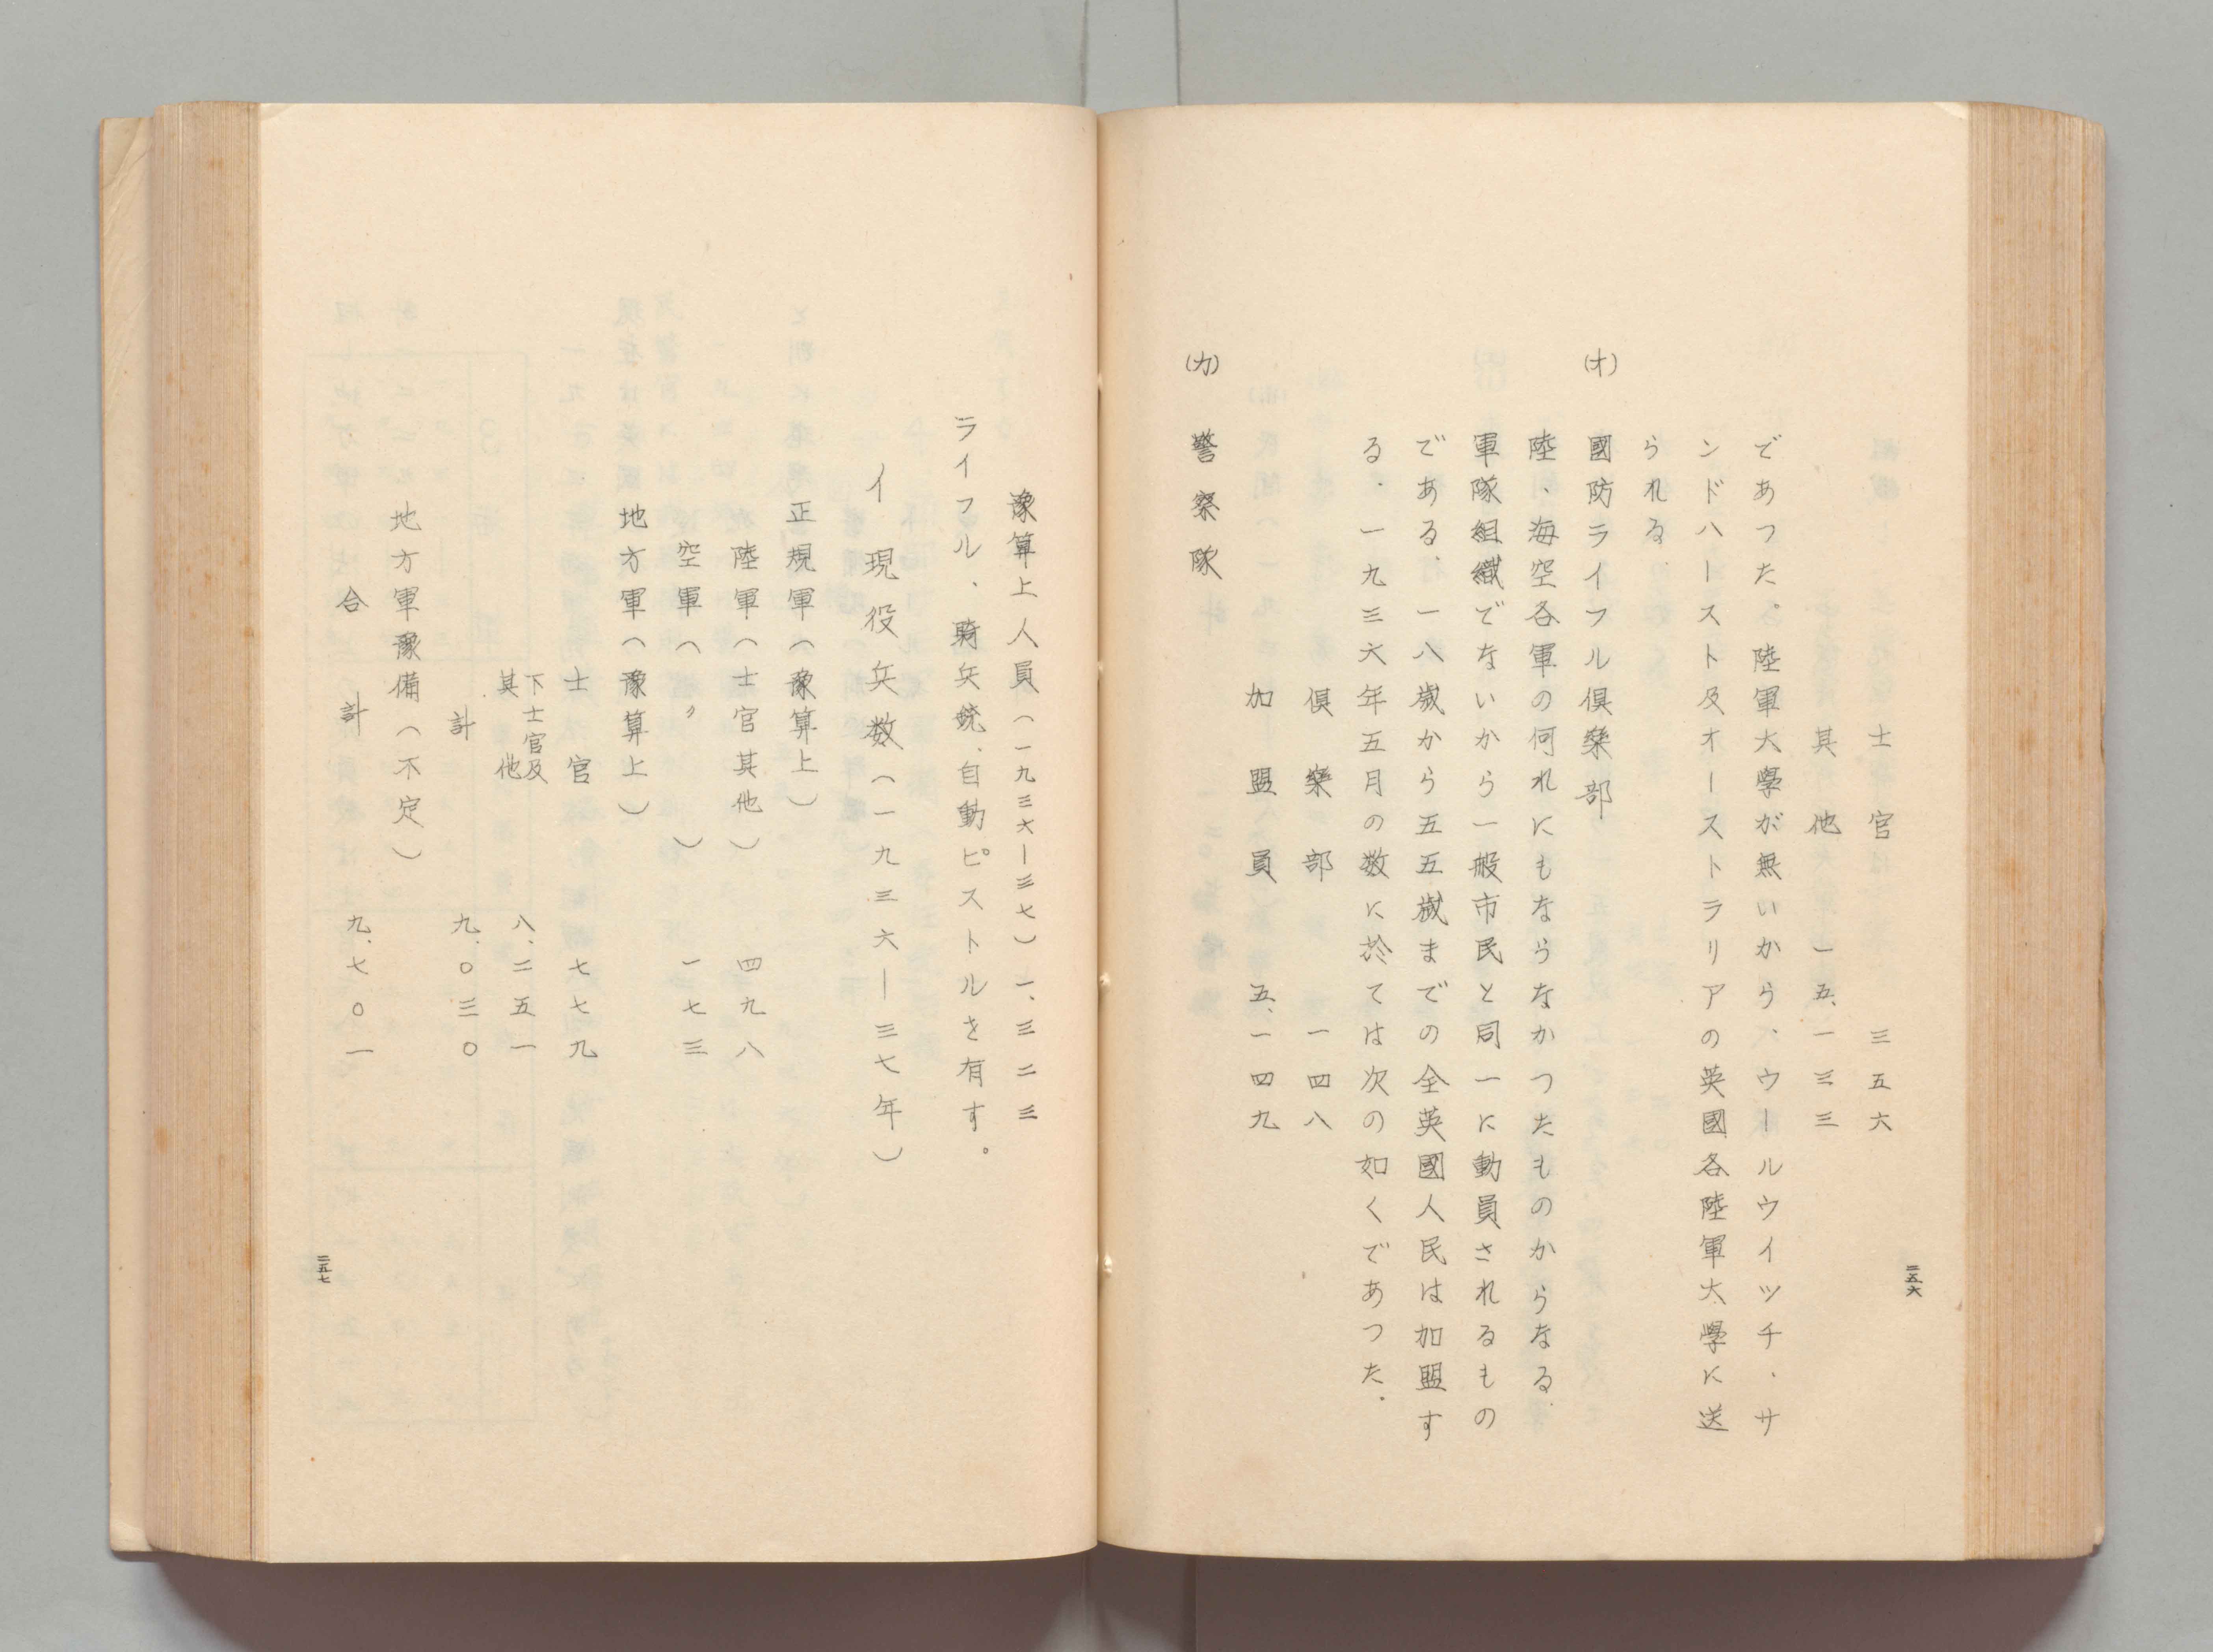 士官 三五六
其他 一五、一三三
であつた。陸軍大學が無いから、ウールウイッチ、サ
ンドハースト及オーストラリアの英國各陸軍大學に送
られる.
(オ) 國防ライフル倶樂部
陸、海空各軍の何れにもならなかつたものからなる.
軍隊組織でないから一般市民と同一に動員されるもの
である.一八歳から五五歳までの全英國人民は加盟す
る.一九三六年五月の数に於ては次の如くであつた.
倶樂部 一四八
加盟員 五、一四九
(カ) 警察隊
二五六
豫算上人員(一九三六―三七)一、三二三
ライフル、騎兵銃、自動ピストルを有す。
イ 現役兵数(一九三六―三七年)
正規軍(豫算上)
陸軍(士官其他) 四九八
空軍( 〃 ) 一七三
地方軍(豫算上)
士官 七七九
下士官及
其他 八、二五一
計 九、〇三〇
地方軍豫備(不定)
合計 九、七〇一
二五七